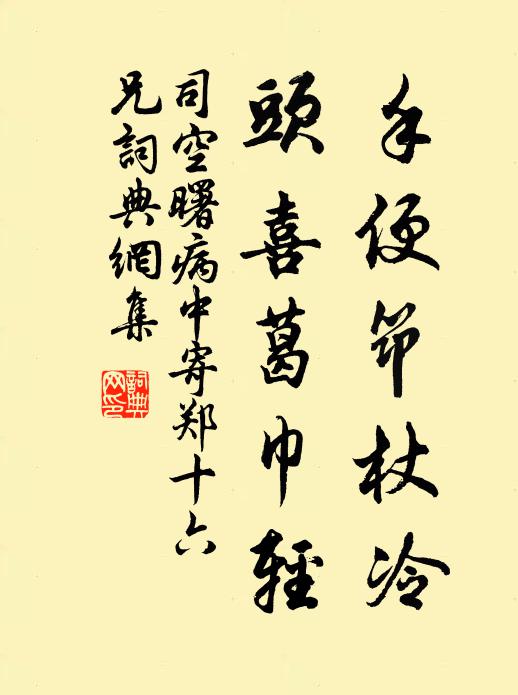 手便筇杖冷
頭喜葛巾輕
司空曙病中寄郑十六
兄詞典網集
詞典
网印